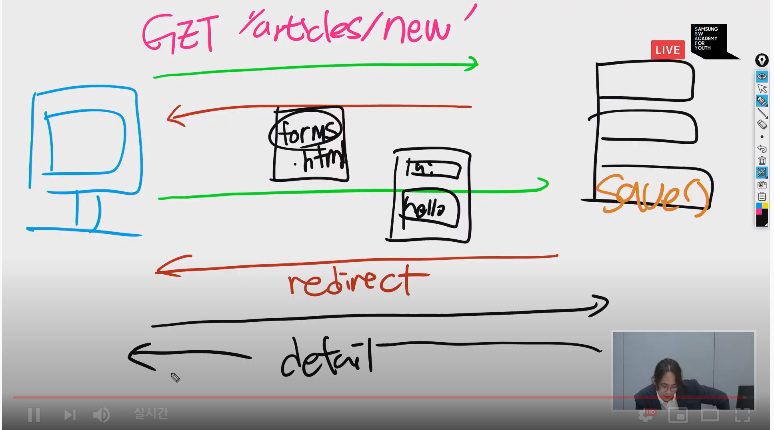 GET "articles/new"
LIVE
SAMSUNG
SW
ACADEMY
FOR
YOUTH
forms
.html
hi
hello
save()
redirect
detail
실시간
HD